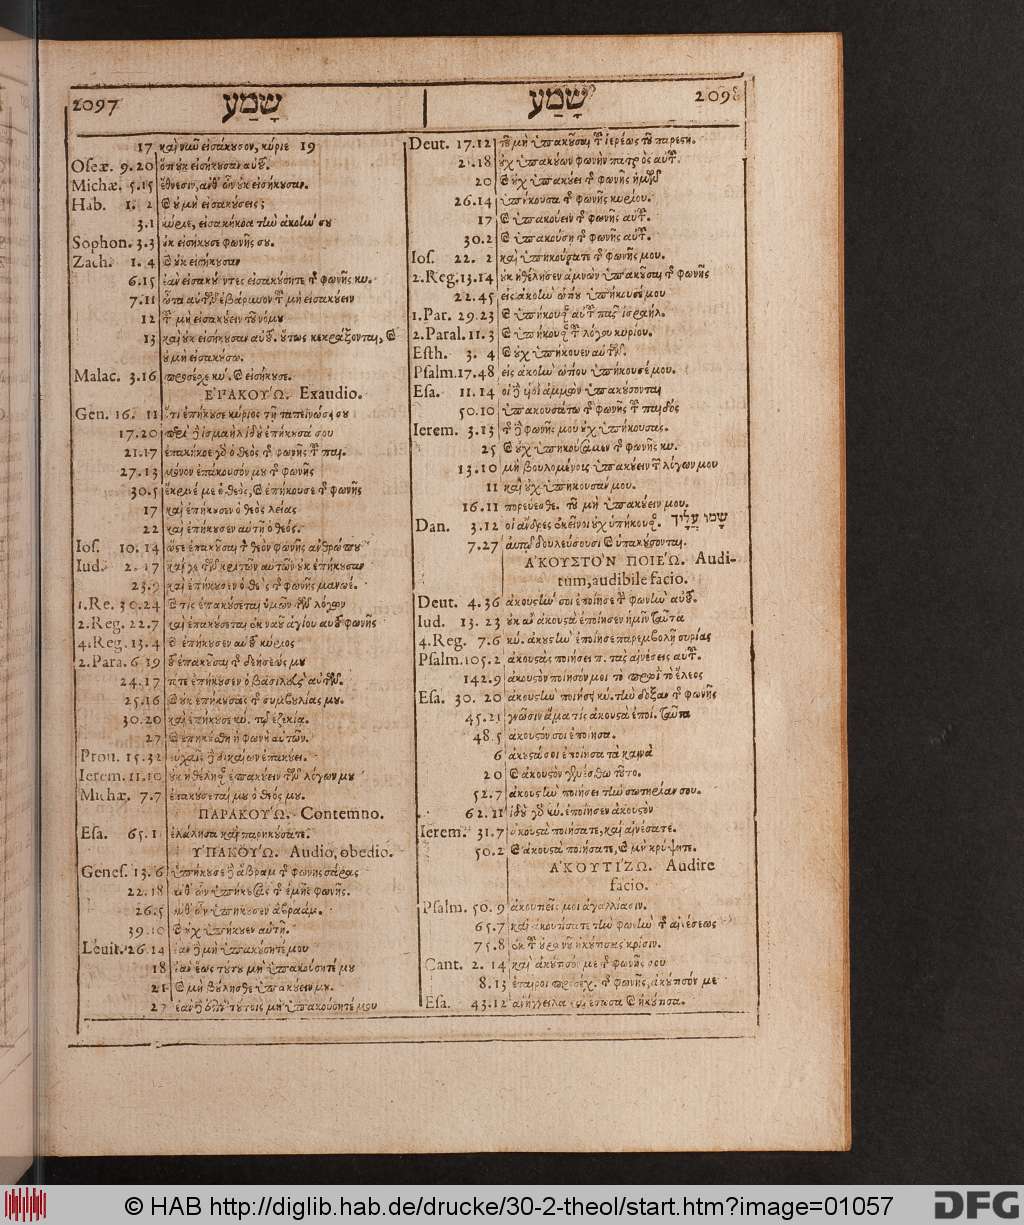 2097 שָׁמַע שָׁמַע 209
17 καὶ νῦν εἰσάκουσον, κύριε 19
Oseæ. 9.20 ὅτι οὐκ εἰσήκουσαν αὐτοῦ.
Michæ. 5.15 ἔθνεσιν, ἀνθ' ὧν οὐκ εἰσήκουσαν.
Hab. 1. 2 καὶ οὐ μὴ εἰσακούσεις;
3.1 κύριε, εἰσακήκοα τὴν ἀκοήν σου
Sophon. 3.3 οὐκ εἰσήκουσε φωνῆς σου.
Zach. 1. 4 καὶ οὐκ εἰσήκουσαν
6.15 ἐὰν εἰσακούοντες εἰσακούσητε τῆς φωνῆς κυ.
7.11 ὦτα αὐτῶν ἐβάρυναν τοῦ μὴ εἰσακούειν
12 τοῦ μὴ εἰσακούειν τοῦ νόμου
13 καὶ οὐκ εἰσήκουσαν αὐτοῦ. οὕτως κεκράξονται, καὶ
οὐ μὴ εἰσακούσω.
Malac. 3.16 προσέσχε κύ. καὶ εἰσήκουσε.
ΕΠΑΚΟΥΏ. Exaudio.
Gen. 16. 11 ὅτι ἐπήκουσε κύριος τῇ ταπεινώσει σου
17.20 περὶ δὲ ἰσμαὴλ ἰδοὺ ἐπήκουσά σου
21.17 ἐπακήκοε γὰρ ὁ θεὸς τῆς φωνῆς τοῦ παι.
27.13 μόνον ἐπάκουσόν μου τῆς φωνῆς
30.5 ἔκρινέ με ὁ θεὸς, καὶ ἐπήκουσε τῆς φωνῆς
17 καὶ ἐπήκουσεν ὁ θεὸς λείας
22 καὶ ἐπήκουσεν αὐτῆ ὁ θεός.
Ios. 10. 14 ὥστε ἐπακοῦσαι τὸν θεὸν φωνῆς ἀνθρώπου
Iud. 2. 17 καί γε τῶν κριτῶν αὐτῶν οὐκ ἐπήκουσαν
23.9 καὶ ἐπήκουσεν ὁ θεὸς τῆς φωνῆς μανωέ.
1.Re. 30.24 καὶ τίς ἐπακούσεται ὑμῶν τῶν λόγων
2.Reg. 22.7 καὶ ἐπακούσεται ἐκ ναοῦ ἁγίου αὐτοῦ φωνῆς
4.Reg. 13.4 καὶ ἐπήκουσεν αὐτοῦ κύριος
2.Para. 6 19 τοῦ ἐπακοῦσαι τῆς δεήσεώς μου
24.17 τότε ἐπήκουσεν ὁ βασιλεὺς αὐτῶν.
25.16 καὶ οὐκ ἐπήκουσας τῆς συμβουλίας μου.
30.20 καὶ ἐπήκουσε κύ. τῷ ἐζεκία.
27 καὶ ἐπηκούσθη ἡ φωνὴ αὐτῶν.
Prou. 15.32 εὐχαῖς δὲ δικαίων ἐπακούει.
Ierem. 11.10 οὐκ ἤθελησαν ἐπακούειν τῶν λόγων μου
Michæ. 7.7 ἐπακούσεταί μου ὁ θεός μου.
ΠΑΡΑΚΟΥΏ. Contemno.
Esa. 65.1 ἐλάλησα καὶ παρηκούσατε.
ΥΠΑΚΟΥΏ. Audio, obedio.
Genes. 13. 6 ὑπήκουσε δὲ ἄβραμ τῆς φωνῆς σάρας
22.18 ἀνθ' ὧν ὑπήκουσας τῆς ἐμῆς φωνῆς.
26.5 ἀνθ' ὧν ὑπήκουσεν ἀβραάμ.
39.10 καὶ οὐχ ὑπήκουεν αὐτῆ.
Leuit. 26.14 ἐὰν δὲ μὴ ὑπακούσητέ μου
18 ἐὰν ἕως τούτου μὴ ὑπακούσητέ μου
21 καὶ μὴ βούλησθε ὑπακούειν μου.
27 ἐὰν δὲ ἐπὶ τούτοις μὴ ὑπακούσητέ μου
Deut. 17.12 τοῦ μὴ ὑπακοῦσαι τοῦ ἱερέως τοῦ παρεστη.
21.18 οὐχ ὑπακούων φωνὴν πατρὸς αὐτοῦ.
20 καὶ οὐχ ὑπακούει τῆς φωνῆς ἡμῶν
26.14 ὑπήκουσα τῆς φωνῆς κυρίου.
17 καὶ ὑπακούειν τῆς φωνῆς αὐτοῦ.
30.2 καὶ ὑπακούσῃ τῆς φωνῆς αὐτοῦ.
Ios. 22. 2 καὶ ὑπηκούσατε τῆς φωνῆς μου.
2.Reg. 13.14 οὐκ ἠθέλησεν ἀμνὼν ὑπακοῦσαι τῆς φωνῆς
22.45 εἰς ἀκοὴν ὠτίου ὑπήκουσέ μου
1.Par. 29.23 καὶ ὑπήκουσαν αὐτοῦ πᾶς ἰσραήλ.
2.Paral. 11.3 καὶ ὑπήκουσαν τοῦ λόγου κυρίου.
Esth. 3. 4 καὶ οὐχ ὑπήκουεν αὐτῶν.
Psalm. 17.48 εἰς ἀκοὴν ὠτίου ὑπήκουσέ μου.
Esa. 11.14 οἱ δὲ υἱοὶ ἀμμὼν ὑπακούσονται
50.10 ὑπακουσάτω τῆς φωνῆς τοῦ παιδὸς
Ierem. 3.13 τῆς δὲ φωνῆς μου οὐχ ὑπήκουσας.
25 καὶ οὐχ ὑπηκούσαμεν τῆς φωνῆς κυ.
13.10 μὴ βουλομένοις ὑπακούειν τῶν λόγων μου
11 καὶ οὐχ ὑπήκουσάν μου.
16.11 πορεύεσθε. τοῦ μὴ ὑπακούειν μου.
Dan. 3.12 οἱ ἄνδρες ἐκεῖνοι οὐχ ὑπήκουσαν. שָׂמוּ עֲלָיִךְ
7.27 αὐτῷ δουλεύσουσι καὶ ὑπακούσονται.
ΑΚΟΥΣΤΟΝ ΠΟΙΕΏ. Audi-
tum, audibile facio.
Deut. 4.36 ἀκουστήν σοι ἐποίησε τὴν φωνὴν αὐτοῦ.
Iud. 13. 23 οὐκ ἂν ἀκουστὰ ἐποίησεν ἡμῖν ταῦτα
4.Reg. 7.6 κύ. ἀκουστὴν ἐποίησε παρεμβολὴ συρίας
Psalm. 105.2 ἀκουστὰς ποιήσει π. τὰς αἰνέσεις αὐτοῦ.
142.9 ἀκουστὸν ποίησόν μοι τὸ πρωῒ τὸ ἔλεος
Esa. 30. 20 ἀκουστὴν ποιήσῃ κύ. τὴν δόξαν τῆς φωνῆς
45.21 γνῶσιν ἅμα τίς ἀκουστὰ ἐποί. ταῦτα
48.5 ἀκουστόν σοι ἐποίησα.
6 ἀκουστά σοι ἐποίησα τὰ καινὰ
20 καὶ ἀκουστὸν γενέσθω τοῦτο.
52.7 ἀκουστὴν ποιήσει τὴν σωτηρίαν σου.
62.11 ἰδοὺ γὰρ κύ. ἐποίησεν ἀκουστὸν
Ierem. 31.7 ἀκουστὰ ποιήσατε, καὶ αἰνέσατε.
50.2 καὶ ἀκουστὰ ποιήσατε, καὶ μὴ κρύψητε.
ΑΚΟΥΤΙΖΩ. Audire
facio.
Psalm. 50. 9 ἀκουτιεῖς μοι ἀγαλλίασιν.
65.7 καὶ ἀκουτίσατε τὴν φωνὴν τῆς αἰνέσεως
75.8 ἐκ τοῦ οὐρανοῦ ἠκούτισας κρίσιν.
Cant. 2. 14 καὶ ἀκούτισόν με τῆς φωνῆς σου
8.13 ἑταῖροι προσέχ. τῆς φωνῆς, ἀκούτισόν με
Esa. 43.12 ἀνήγγειλα καὶ ἔσωσα καὶ ἠκούτισα.
© HAB http://diglib.hab.de/drucke/30-2-theol/start.htm?image=01057 DFG